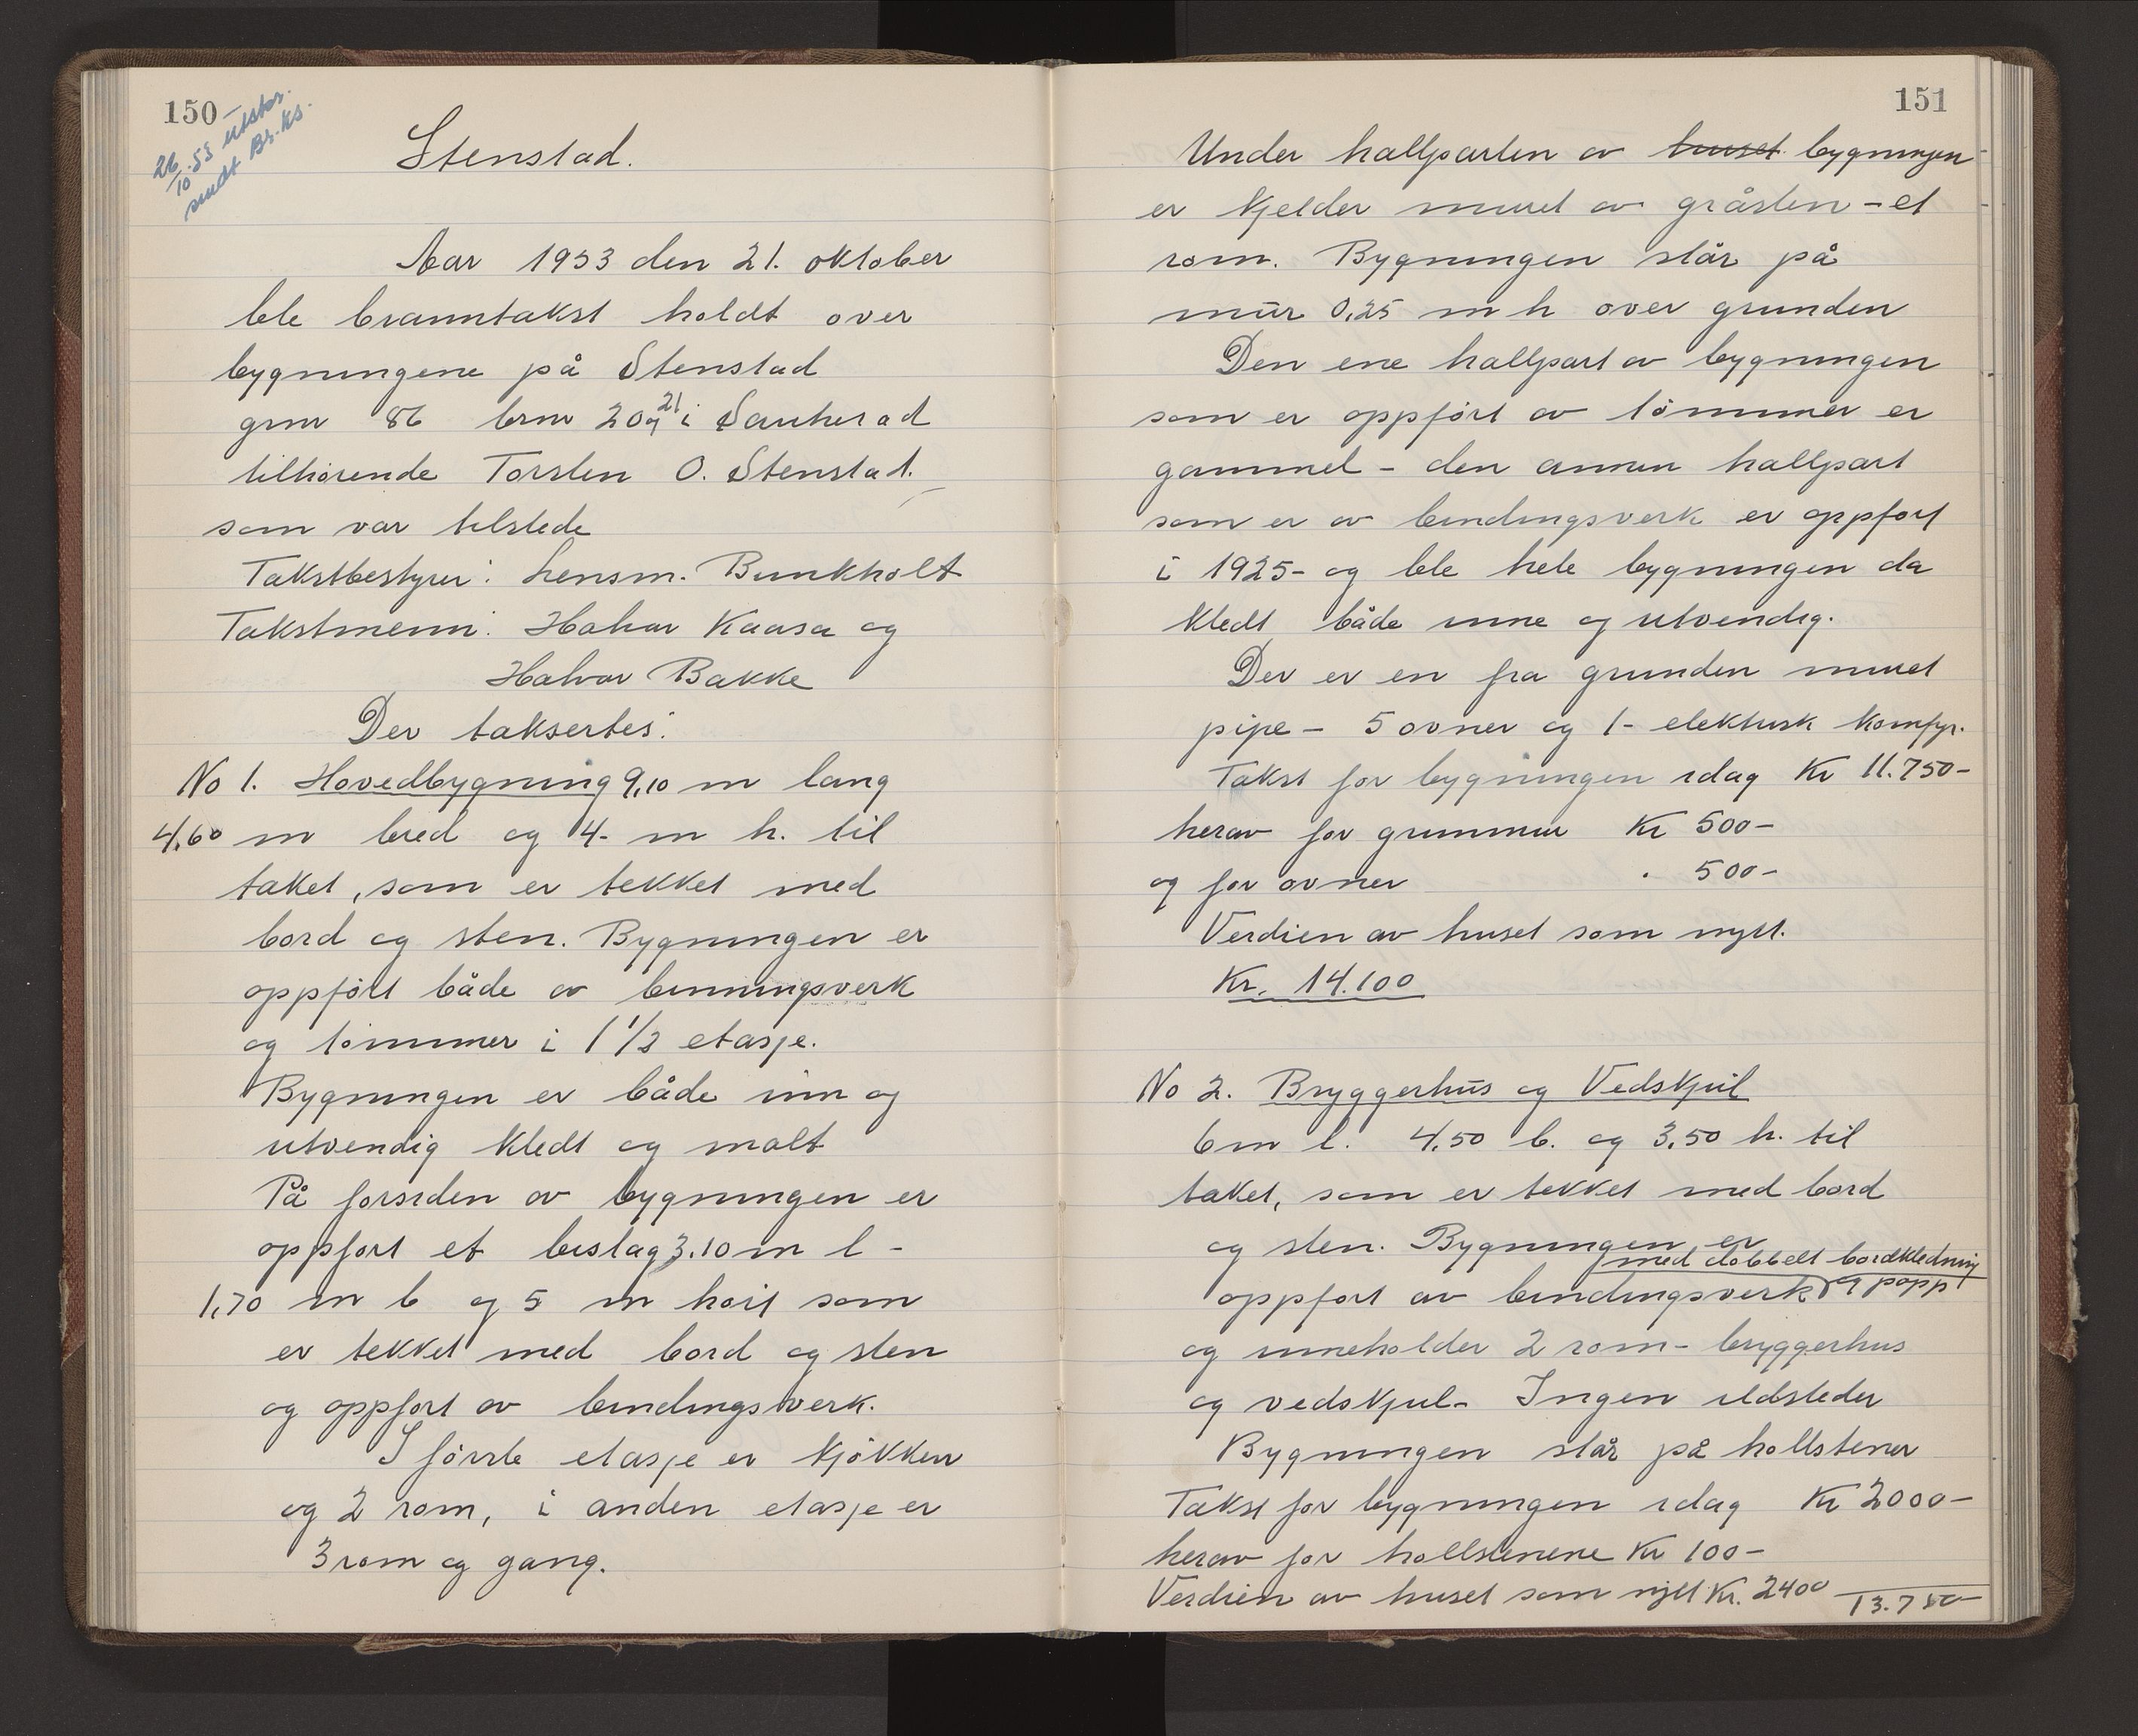 150
26/10.53 utstor.
sendt Br.ks.
Stenstad.
Aar 1953 den 21. oktober
ble branntakst holdt over
bygningene på Stenstad
gnr 86 brn 20 og 21 i Sauherad
tilhørende Torsten O. Stenstad.
som var tilstede
Takstbestyrer: Lensm. Bunkholt
Takstmenn: Halvor Kaasa og
Halvor Bakke
Der taksertes:
No 1. Hovedbygning 9,10 m lang
4,60 m bred og 4- m h. til
taket, som er tekket med
bord og sten. Bygningen er
oppført både av binningsverk
og tømmer i 1 1/2 etasje.
Bygningen er både inn og
utvendig kledt og malt
På forsiden av bygningen er
oppført et bislag 3.10 m l -
1,70 m b og 5 m høit som
er tekket med bord og sten
og oppført av bindingsverk.
I første etasje er kjøkken
og 2 rom, i anden etasje er
3 rom og gang.
151
Under hallparten av huset bygningen
er kjelder muret av gråsten - et
rom. Bygningen står på
mur 0,25 m h over grunden
Den ene hallpart av bygningen
som er oppført av tømmer er
gammel - den annen hallpart
som er av bindingsverk er oppført
i 1925- og ble hele bygningen da
kledt både inne og utvendig.
Der er en fra grunden muret
pipe - 5 ovner og 1- elektrisk komfyr.
Takst for bygningen idag Kr 11.750-
herav for grunnmur Kr 500-
og for ovner . 500-
Verdien av huset som nytt.
Kr. 14.100
No 2. Bryggerhus og Vedskjul
6 m l. 4,50 b. og 3,50 h. til
taket, som er tekket med bord
og sten. Bygningen er
med dobbelt bordkledning
oppført av bindingsverk og papp
og inneholder 2 rom - bryggerhus
og vedskjul - Ingen ildsteder
Bygningen står på hollstener
Takst for bygningen idag Kr 2000-
herav for hollstenene Kr 100-
Verdien av huset som nytt Kr. 2400 13.750-